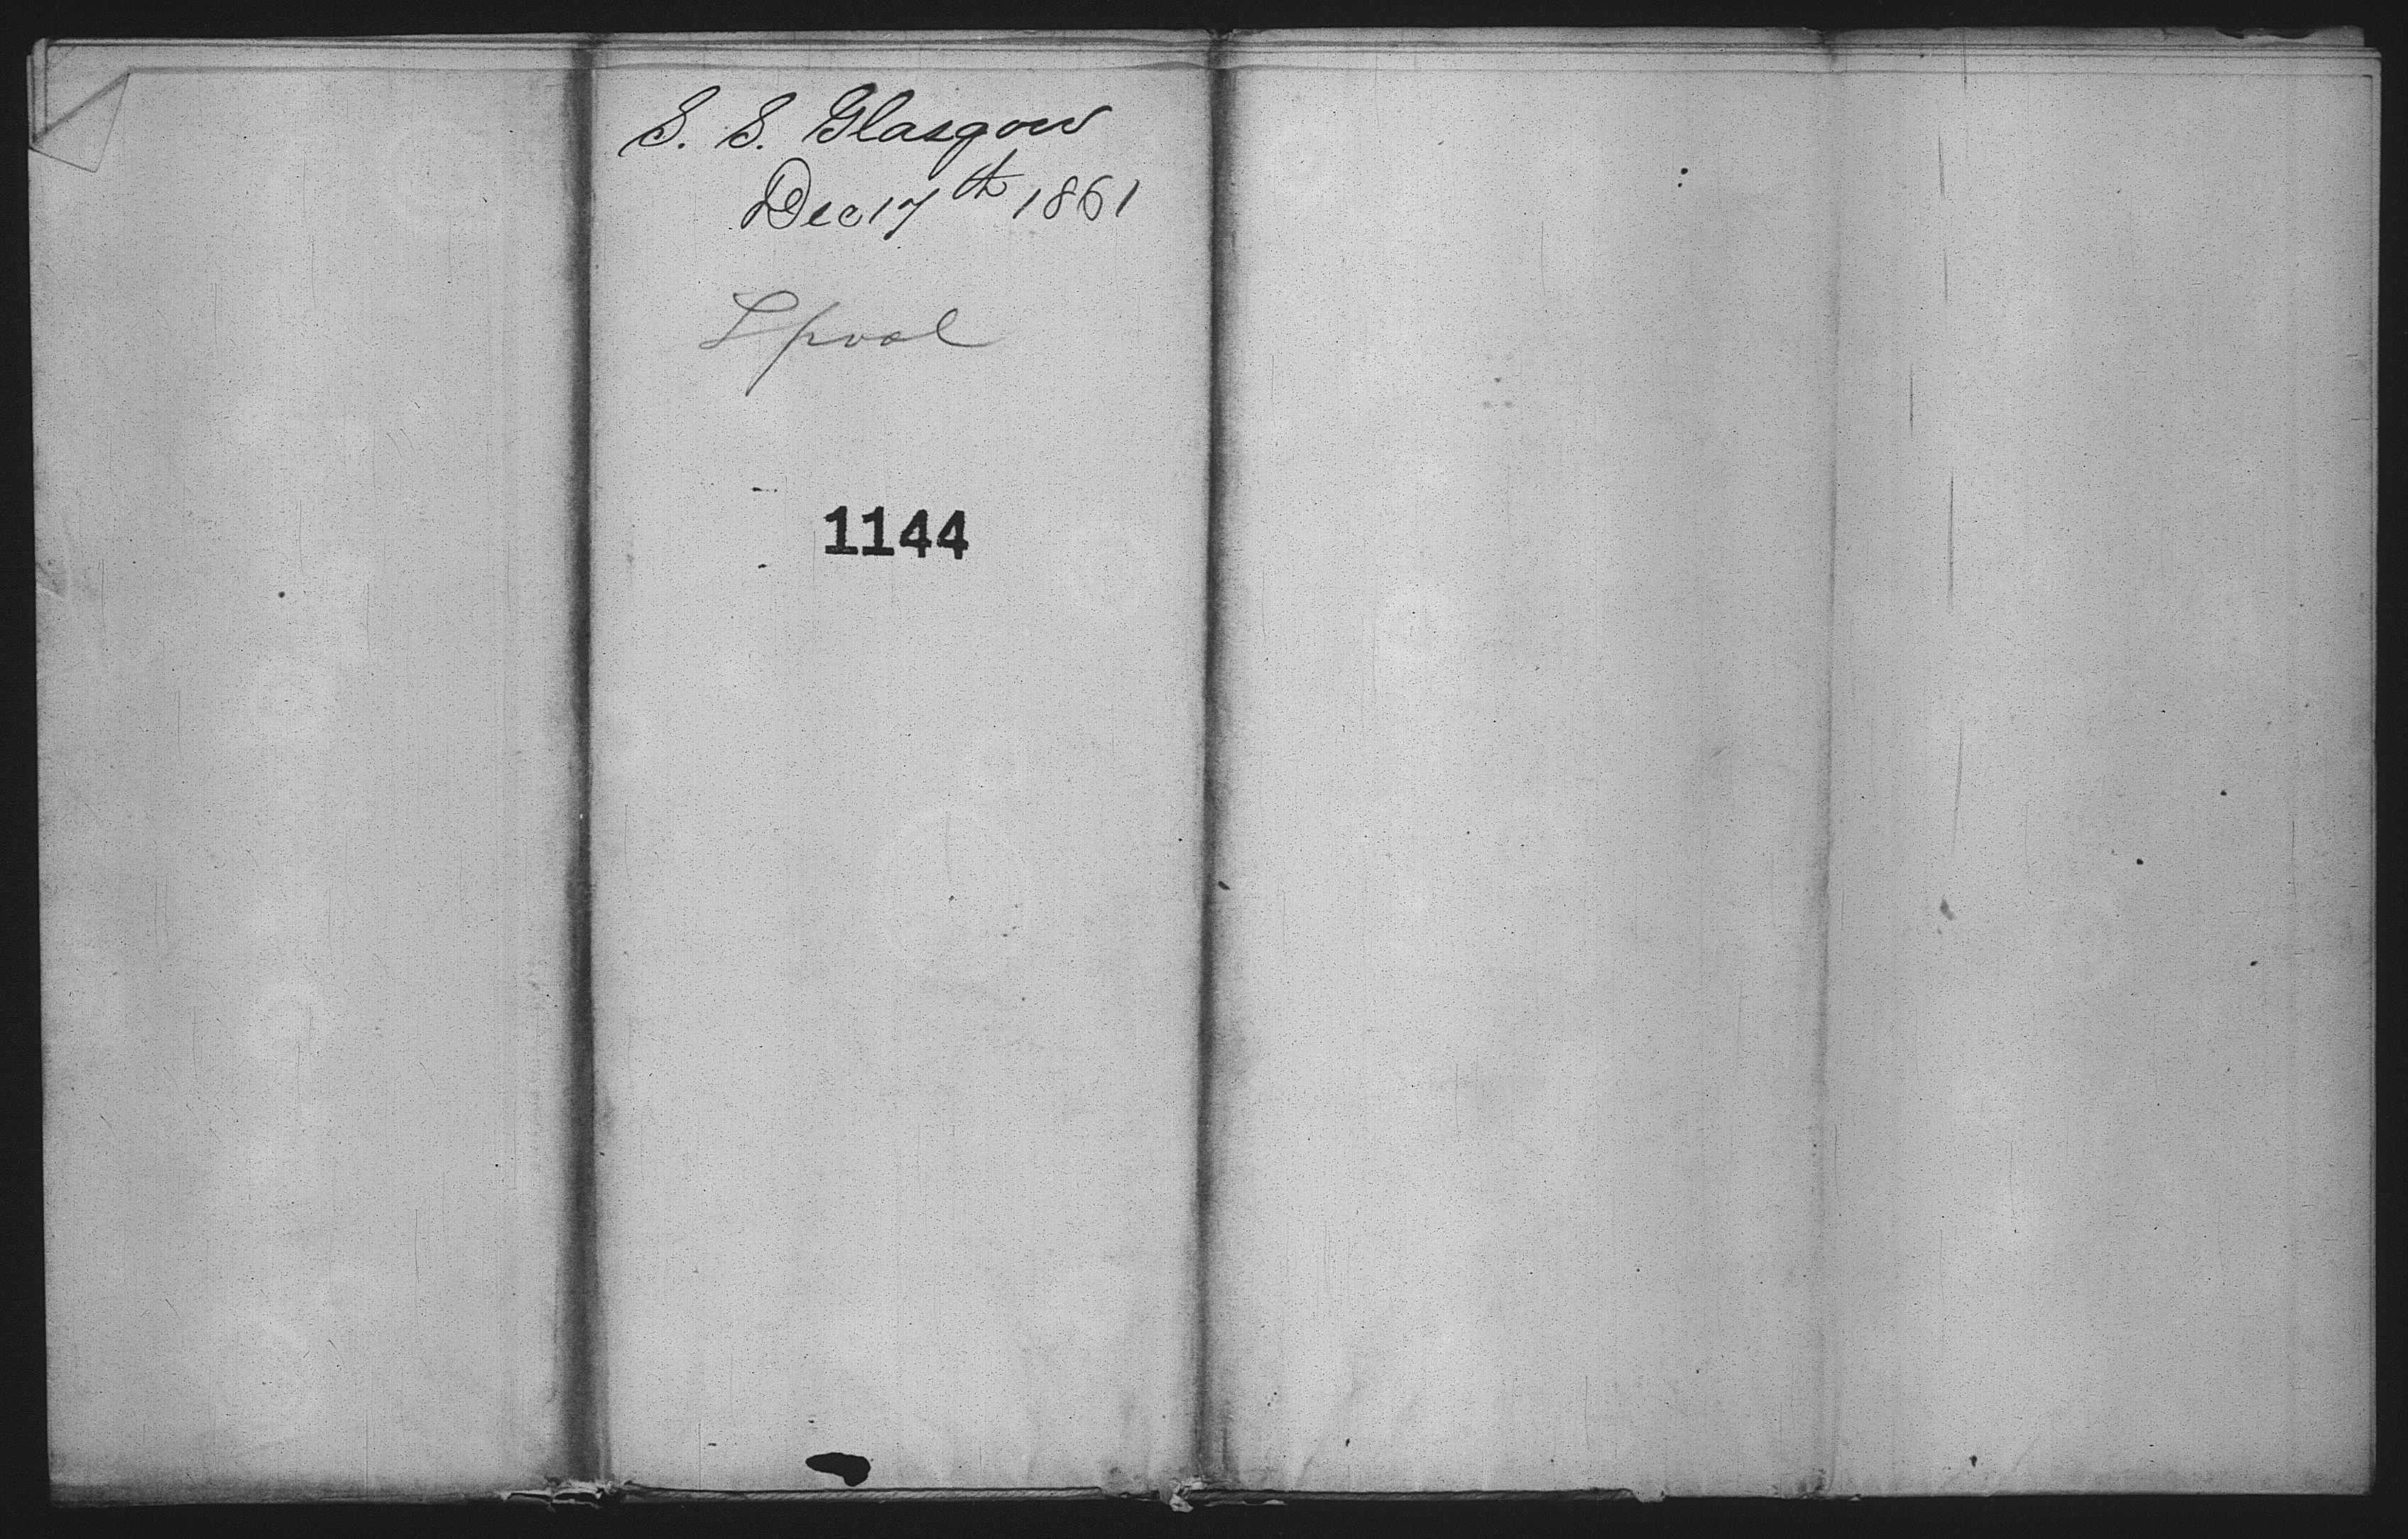 S. S. Glasgow
Dec 17th 1861
Lpool
1144